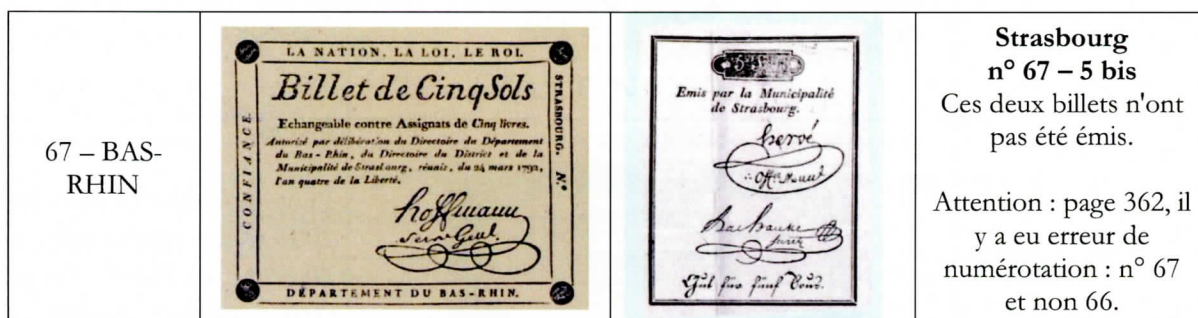 67 – BAS-
RHIN
LA NATION, LA LOI, LE ROI.
CONFIANCE.
Billet de Cinq Sols
Echangeable contre Assignats de Cinq livres.
Autorisé par délibération du Directoire du Département
du Bas-Rhin, du Directoire du District et de la
Municipalité de Strasbourg, réunis, du 24 mars 1792,
l'an quatre de la Liberté.
hoffmann
STRASBOURG. N.º
DÉPARTEMENT DU BAS-RHIN.
Emis par la Municipalité
de Strasbourg.
hervé
Strasbourg
n° 67 – 5 bis
Ces deux billets n'ont
pas été émis.
Attention : page 362, il
y a eu erreur de
numérotation : n° 67
et non 66.